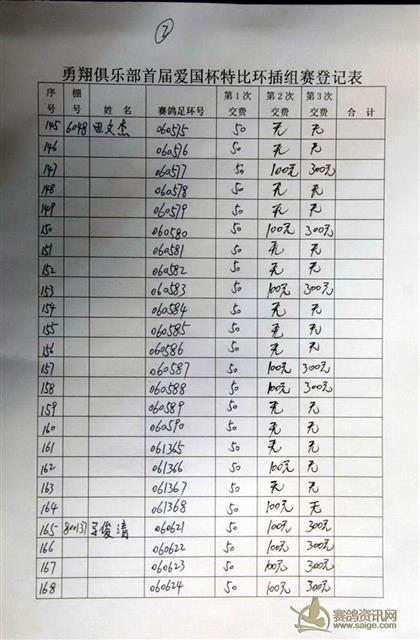 ⑦
勇翔俱乐部首届爱国杯特比环插组赛登记表
序号 棚号 姓名 赛鸽足环号 第1次交费 第2次交费 第3次交费 合计
145 6048 田文杰 060575 50 无 无
146 060576 50 无 无
147 060577 50 100元 300元
148 060578 50 无 无
149 060579 50 无 无
150 060580 50 100元 300元
151 060581 50 无 无
152 060582 50 无 无
153 060583 50 100元 300元
154 060584 50 无 无
155 060585 50 无 无
156 060586 50 无 无
157 060587 50 100元 300元
158 060588 50 100元 300元
159 060589 50 无 无
160 060590 50 无 无
161 061365 50 无 无
162 061366 50 100元 无
163 061367 50 无 无
164 061368 50 100元 无
165 800137 俊清 060621 50 100元 300元
166 060622 50 100元 300元
167 060623 50 100元 300元
168 060624 50 100元 300元
赛鸽资讯网
www.saige.com